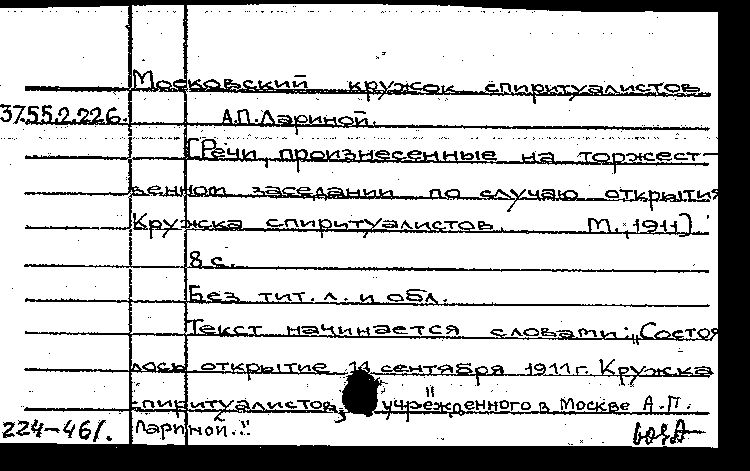 Московский кружок спиритуалистов
37.55.2.226. А.П.Лариной.
[Речи, произнесенные на торжест-
венном заседании по случаю открытия
Кружка спиритуалистов. М., 1911].
8 с.
Без тит. л. и обл.
Текст начинается словами: „Состоя
лось открытие 14 сентября 1911 г. Кружка
спиритуалистов, учрежденного в Москве А.П.
224-46/. Лариной."